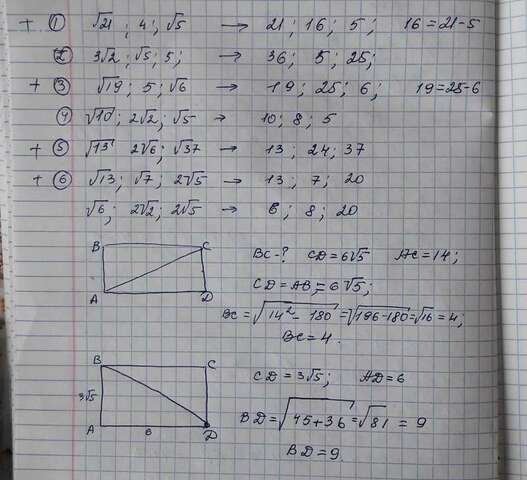 + ① √21 ; 4 ; √5 → 21 ; 16 ; 5 ; 16 = 21-5
② 3√2 ; √5 ; 5 ; → 36 ; 5 ; 25 ;
+ ③ √19 ; 5 ; √6 → 19 ; 25 ; 6 ; 19 = 25-6
④ √10 ; 2√2 ; √5 → 10 ; 8 ; 5
+ ⑤ √13 ; 2√6 ; √37 → 13 ; 24 ; 37
+ ⑥ √13 ; √7 ; 2√5 → 13 ; 7 ; 20
√6 ; 2√2 ; 2√5 → 6 ; 8 ; 20
B C
A D
BC = ? CD = 6√5 AC = 14 ;
CD = AB = 6√5 ;
BC = √14² - 180 = √196 - 180 = √16 = 4 ;
BC = 4.
B C
3√5
A 6 D
CD = 3√5 ; AD = 6
BD = √45 + 36 = √81 = 9
BD = 9.